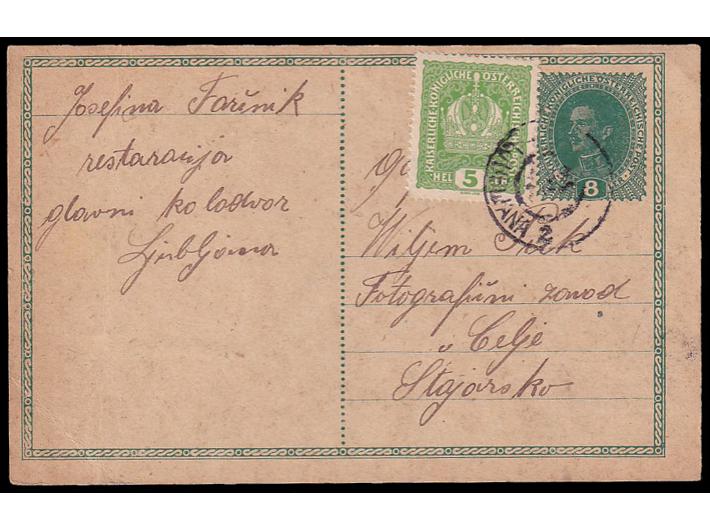 Josefina Farčnik
restaracija
glavni kolodvor
Ljubljana
KAISERLICHE KÖNIGLICHE ÖSTERREICHISCHE POST
HEL 5
KAISERLICHE KÖNIGLICHE ÖSTERREICHISCHE POST
8
2
Viljem
Fotografični zavod
v Celje
Štajarsko